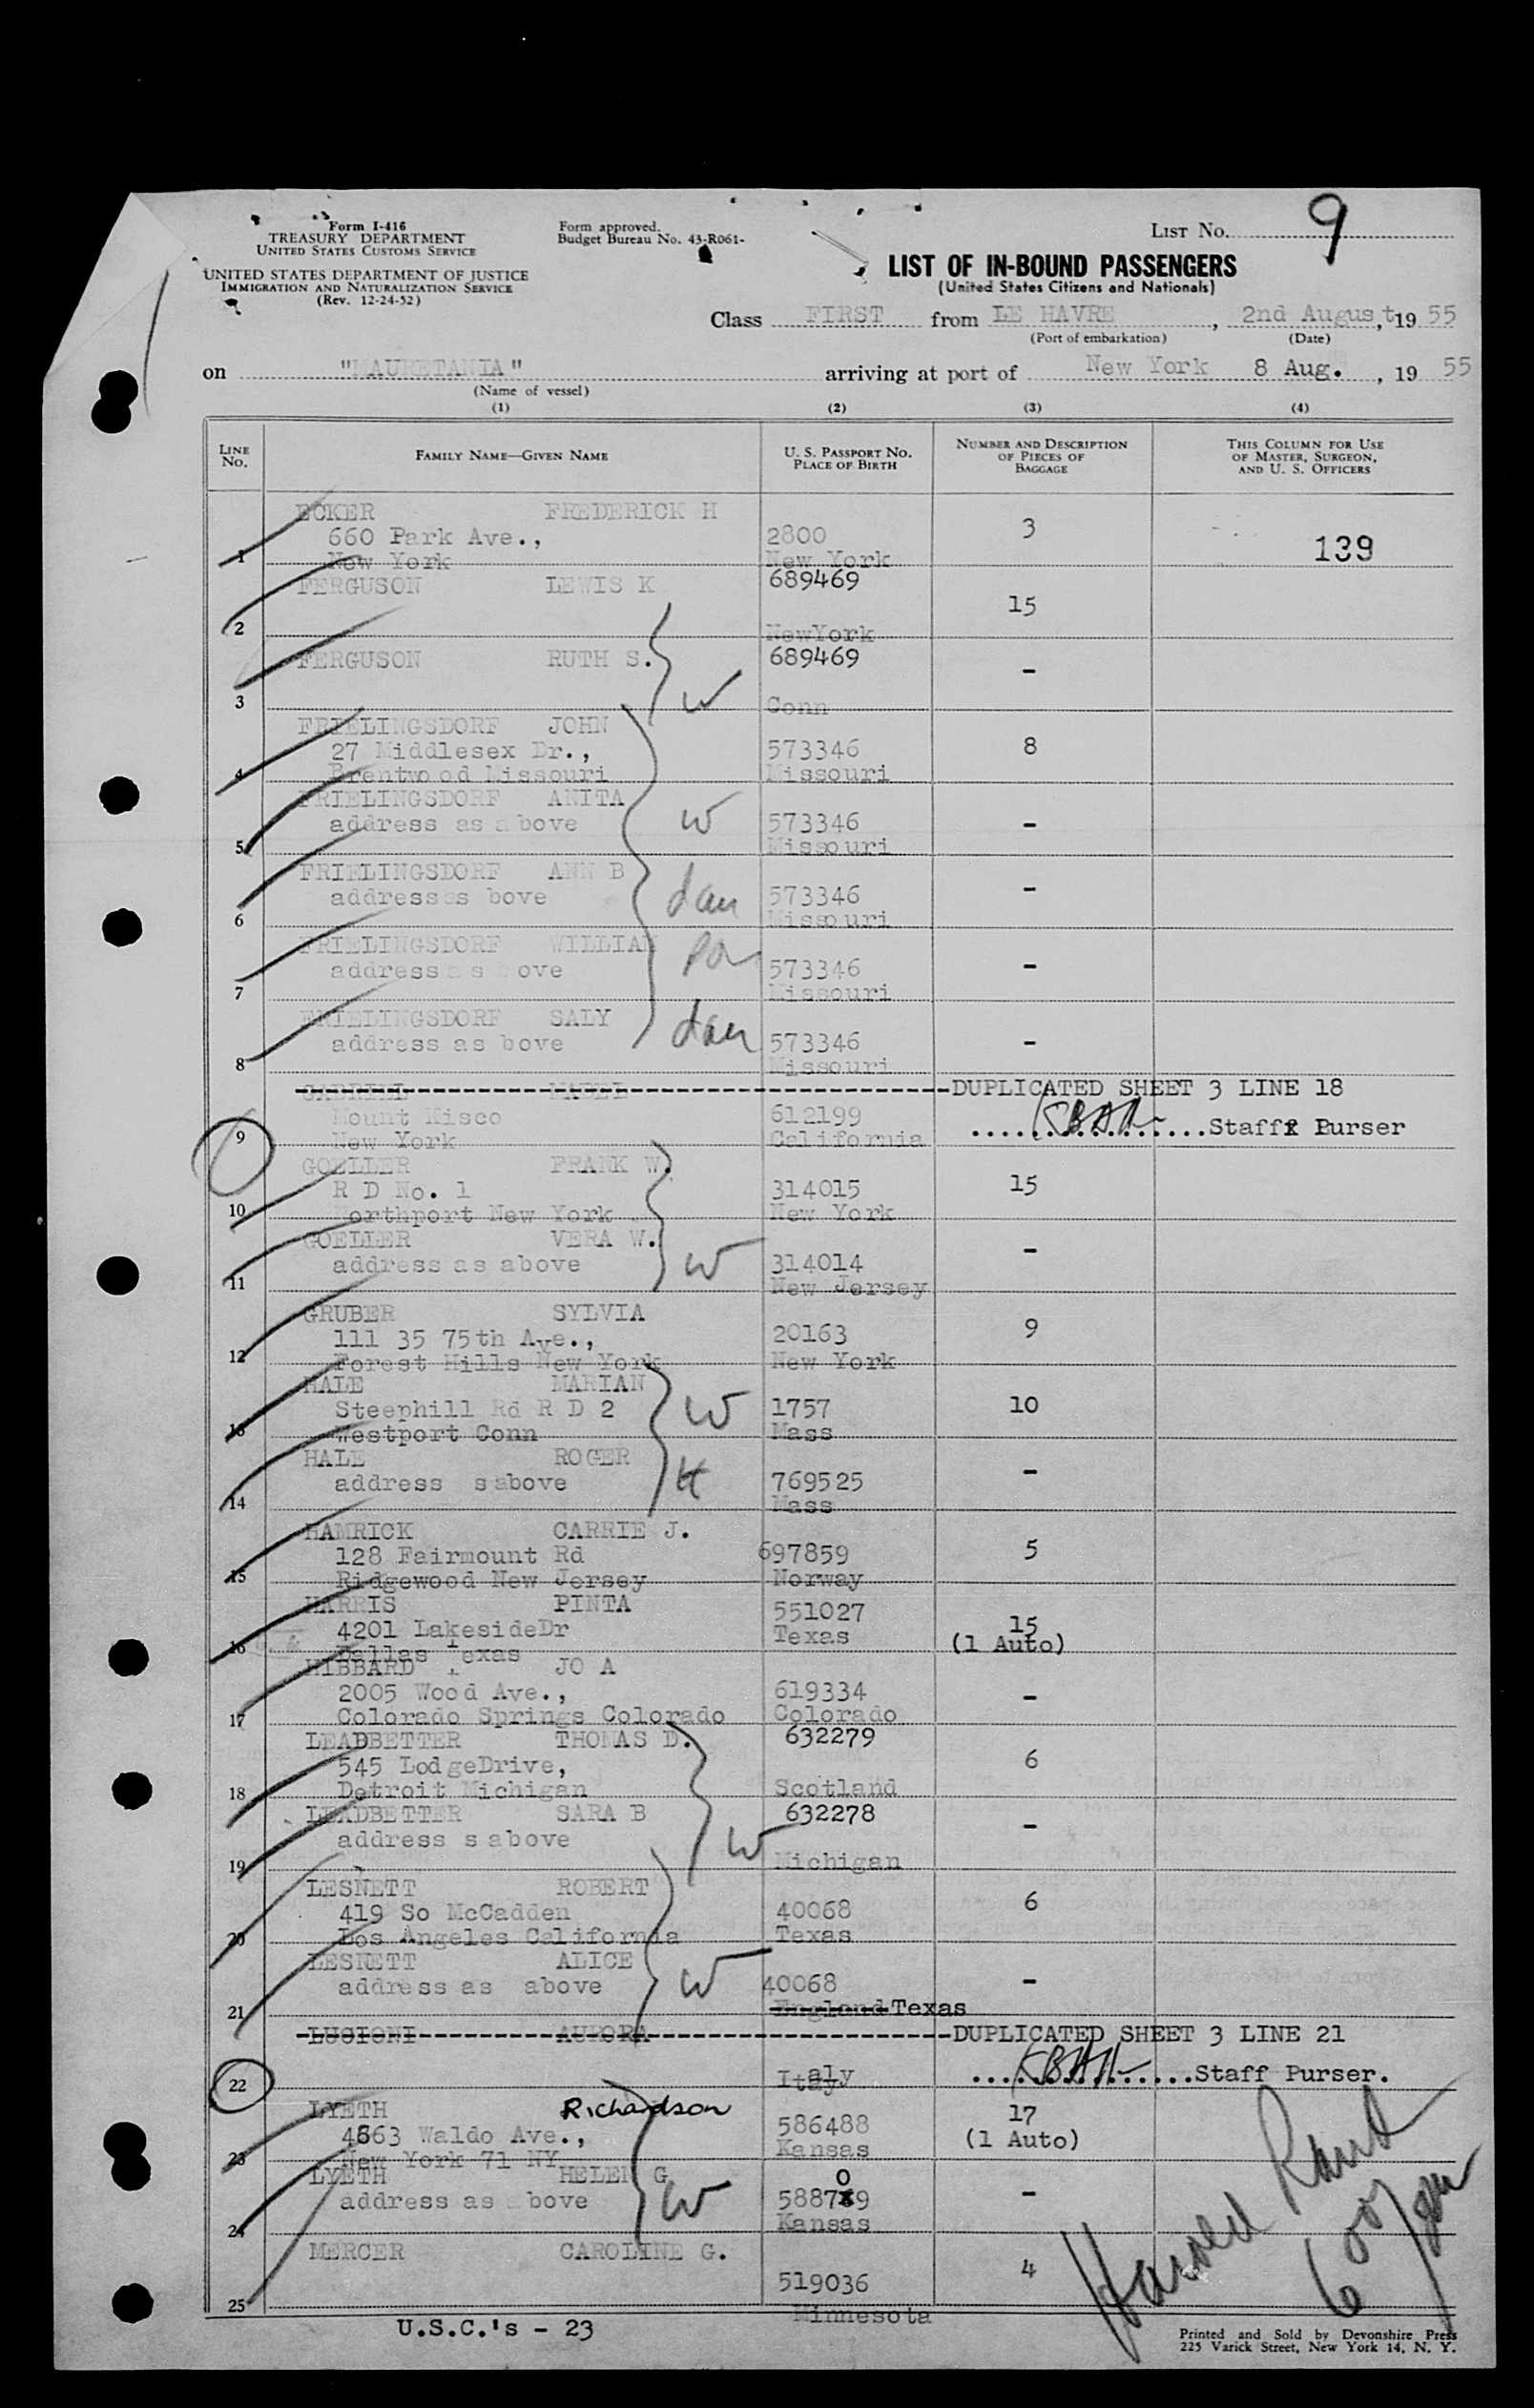 Form I-416
TREASURY DEPARTMENT
UNITED STATES CUSTOMS SERVICE
UNITED STATES DEPARTMENT OF JUSTICE
IMMIGRATION AND NATURALIZATION SERVICE
(Rev. 12-24-52)
Form approved.
Budget Bureau No. 43-R061-
LIST No. 9
LIST OF IN-BOUND PASSENGERS
(United States Citizens and Nationals)
Class FIRST from LE HAVRE, 2nd August, 19 55
(Port of embarkation) (Date)
on "MAURETANIA" arriving at port of New York 8 Aug., 19 55
(Name of vessel)
(1) (2) (3) (4)
LINE No. FAMILY NAME—GIVEN NAME U. S. PASSPORT NO. PLACE OF BIRTH NUMBER AND DESCRIPTION OF PIECES OF BAGGAGE THIS COLUMN FOR USE OF MASTER, SURGEON, AND U. S. OFFICERS
ECKER FREDERICK H
660 Park Ave., 2800 3 139
1 New York New York
FERGUSON LEWIS K 689469
15
2 NewYork
FERGUSON RUTH S. 689469 -
3 W Conn
FRIELINGSDORF JOHN
27 Middlesex Dr., 573346 8
4 Brentwood Missouri Missouri
FRIELINGSDORF ANITA
address as above W 573346 -
5 Missouri
FRIELINGSDORF ANN B
address as bove dau 573346 -
6 Missouri
FRIELINGSDORF WILLIAM
address as ove 573346 -
7 Missouri
FRIELINGSDORF SALY
address as bove dau 573346 -
8 Missouri
GABRIEL MABEL DUPLICATED SHEET 3 LINE 18
Mount Kisco 612199 Staff Purser
9 New York California
GOELLER FRANK W.
R D No. 1 314015 15
10 Northport New York New York
GOELLER VERA W.
address as above W 314014 -
11 New Jersey
GRUBER SYLVIA
111 35 75th Ave., 20163 9
12 Forest Hills New York New York
HALE MARIAN
Steephill Rd R D 2 W 1757 10
13 Westport Conn Mass
HALE ROGER
address s above H 769525 -
14 Mass
HAMRICK CARRIE J.
128 Fairmount Rd 697859 5
15 Ridgewood New Jersey Norway
HARRIS PINTA 551027
4201 LakesideDr Texas 15
16 Dallas Texas (1 Auto)
HIBBARD JO A
2005 Wood Ave., 619334 -
17 Colorado Springs Colorado Colorado
LEADBETTER THOMAS D. 632279
545 LodgeDrive, 6
18 Detroit Michigan Scotland
LEADBETTER SARA B 632278
address s above -
19 W Michigan
LESNETT ROBERT
419 So McCadden 40068 6
20 Los Angeles California Texas
LESNETT ALICE
address as above W 40068 -
21 England Texas
LUCIONI AURORA DUPLICATED SHEET 3 LINE 21
22 Italy Staff Purser.
LYETH Richardson 586488 17
4663 Waldo Ave., Kansas (1 Auto)
23 New York 71 NY
LYETH HELEN G 0
address as bove W 588789 -
24 Kansas
MERCER CAROLINE G.
519036 4
25 Minnesota
U.S.C.'s - 23
Harold
Printed and Sold by Devonshire Press
225 Varick Street, New York 14, N. Y.